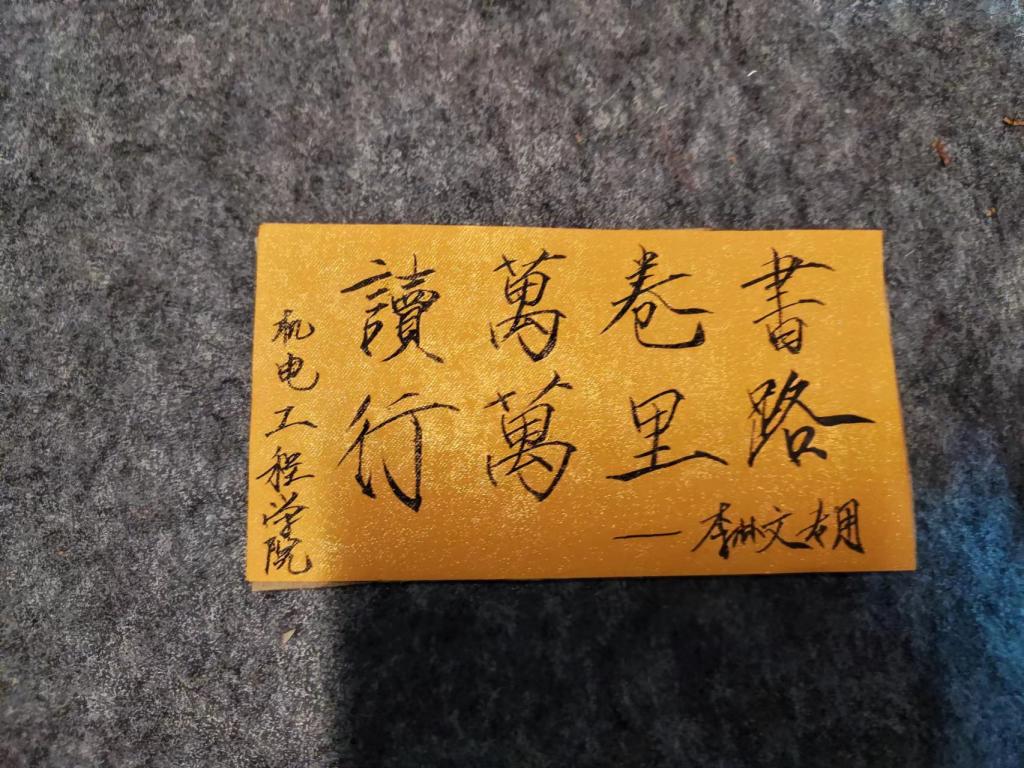 讀萬卷書
行萬里路
——李林文专用
机电工程学院